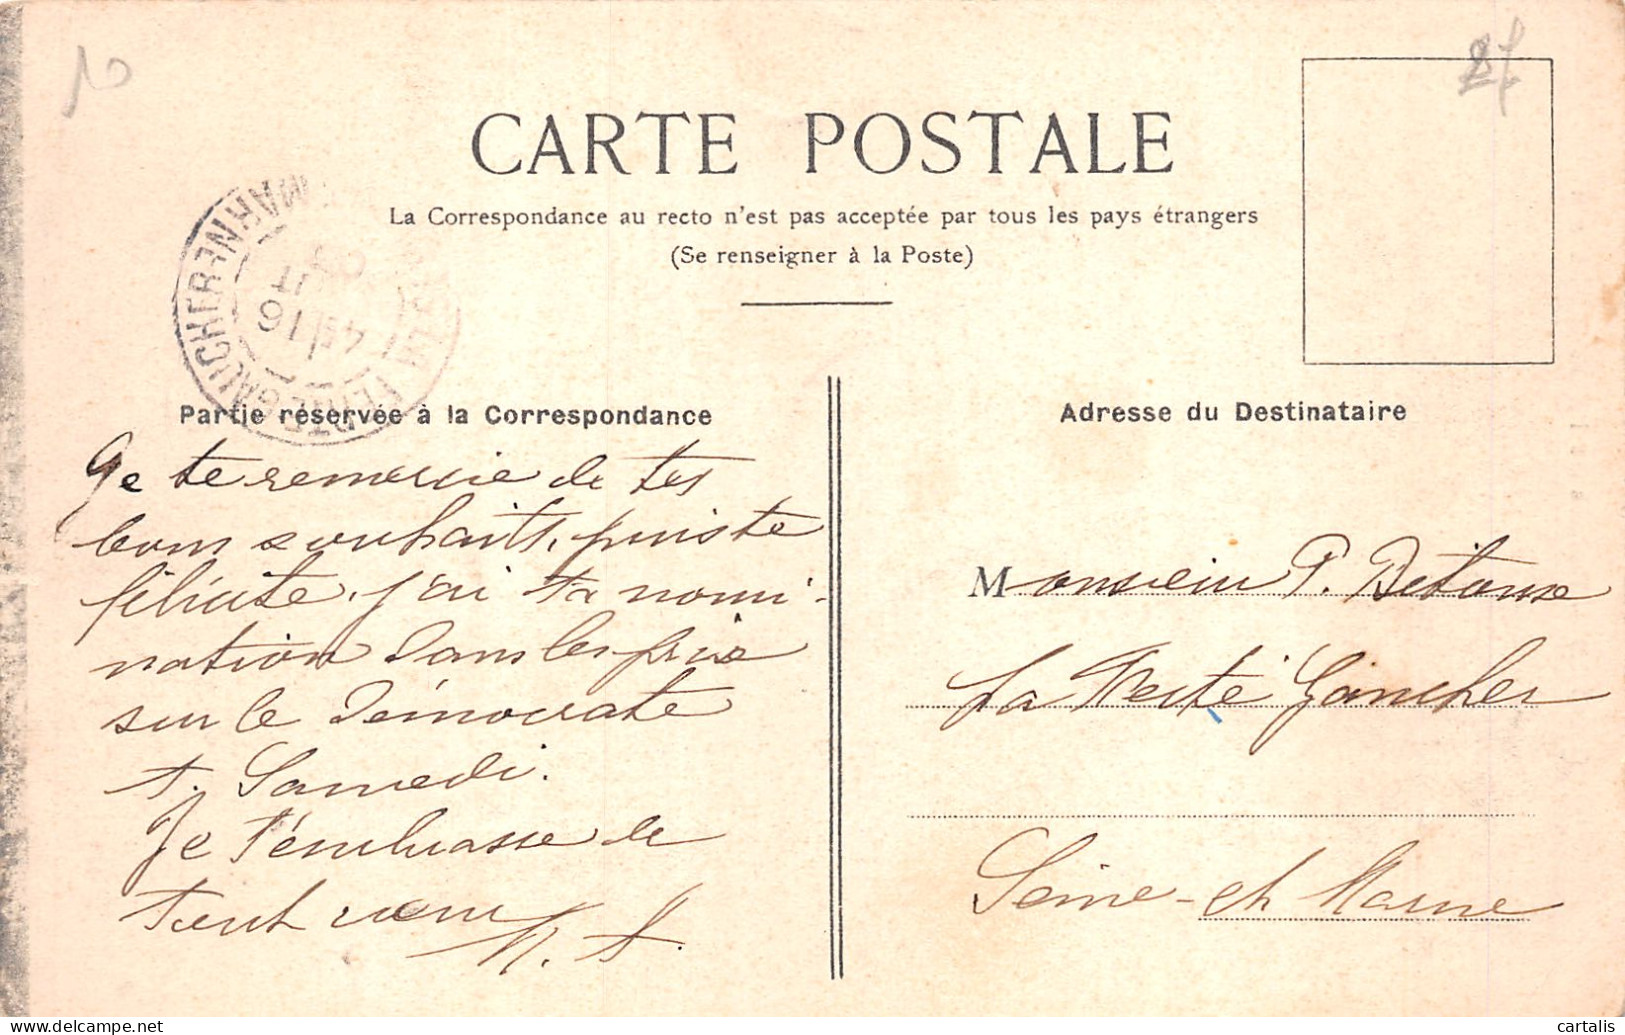 10
CARTE POSTALE
La Correspondance au recto n'est pas acceptée par tous les pays étrangers
(Se renseigner à la Poste)
LA FERTÉ GAUCHER
MARNE
16
Partie réservée à la Correspondance
Je te remercie de tes
bons souhaits, puis te
félicite. j'ai ta nomi-
nation dans les prix
sur le Démocrate
Samedi.
Je t'embrasse de
tout cœur
Adresse du Destinataire
Monsieur P.
La Ferté Gaucher
Seine-et Marne
cartalis
delcampe.net